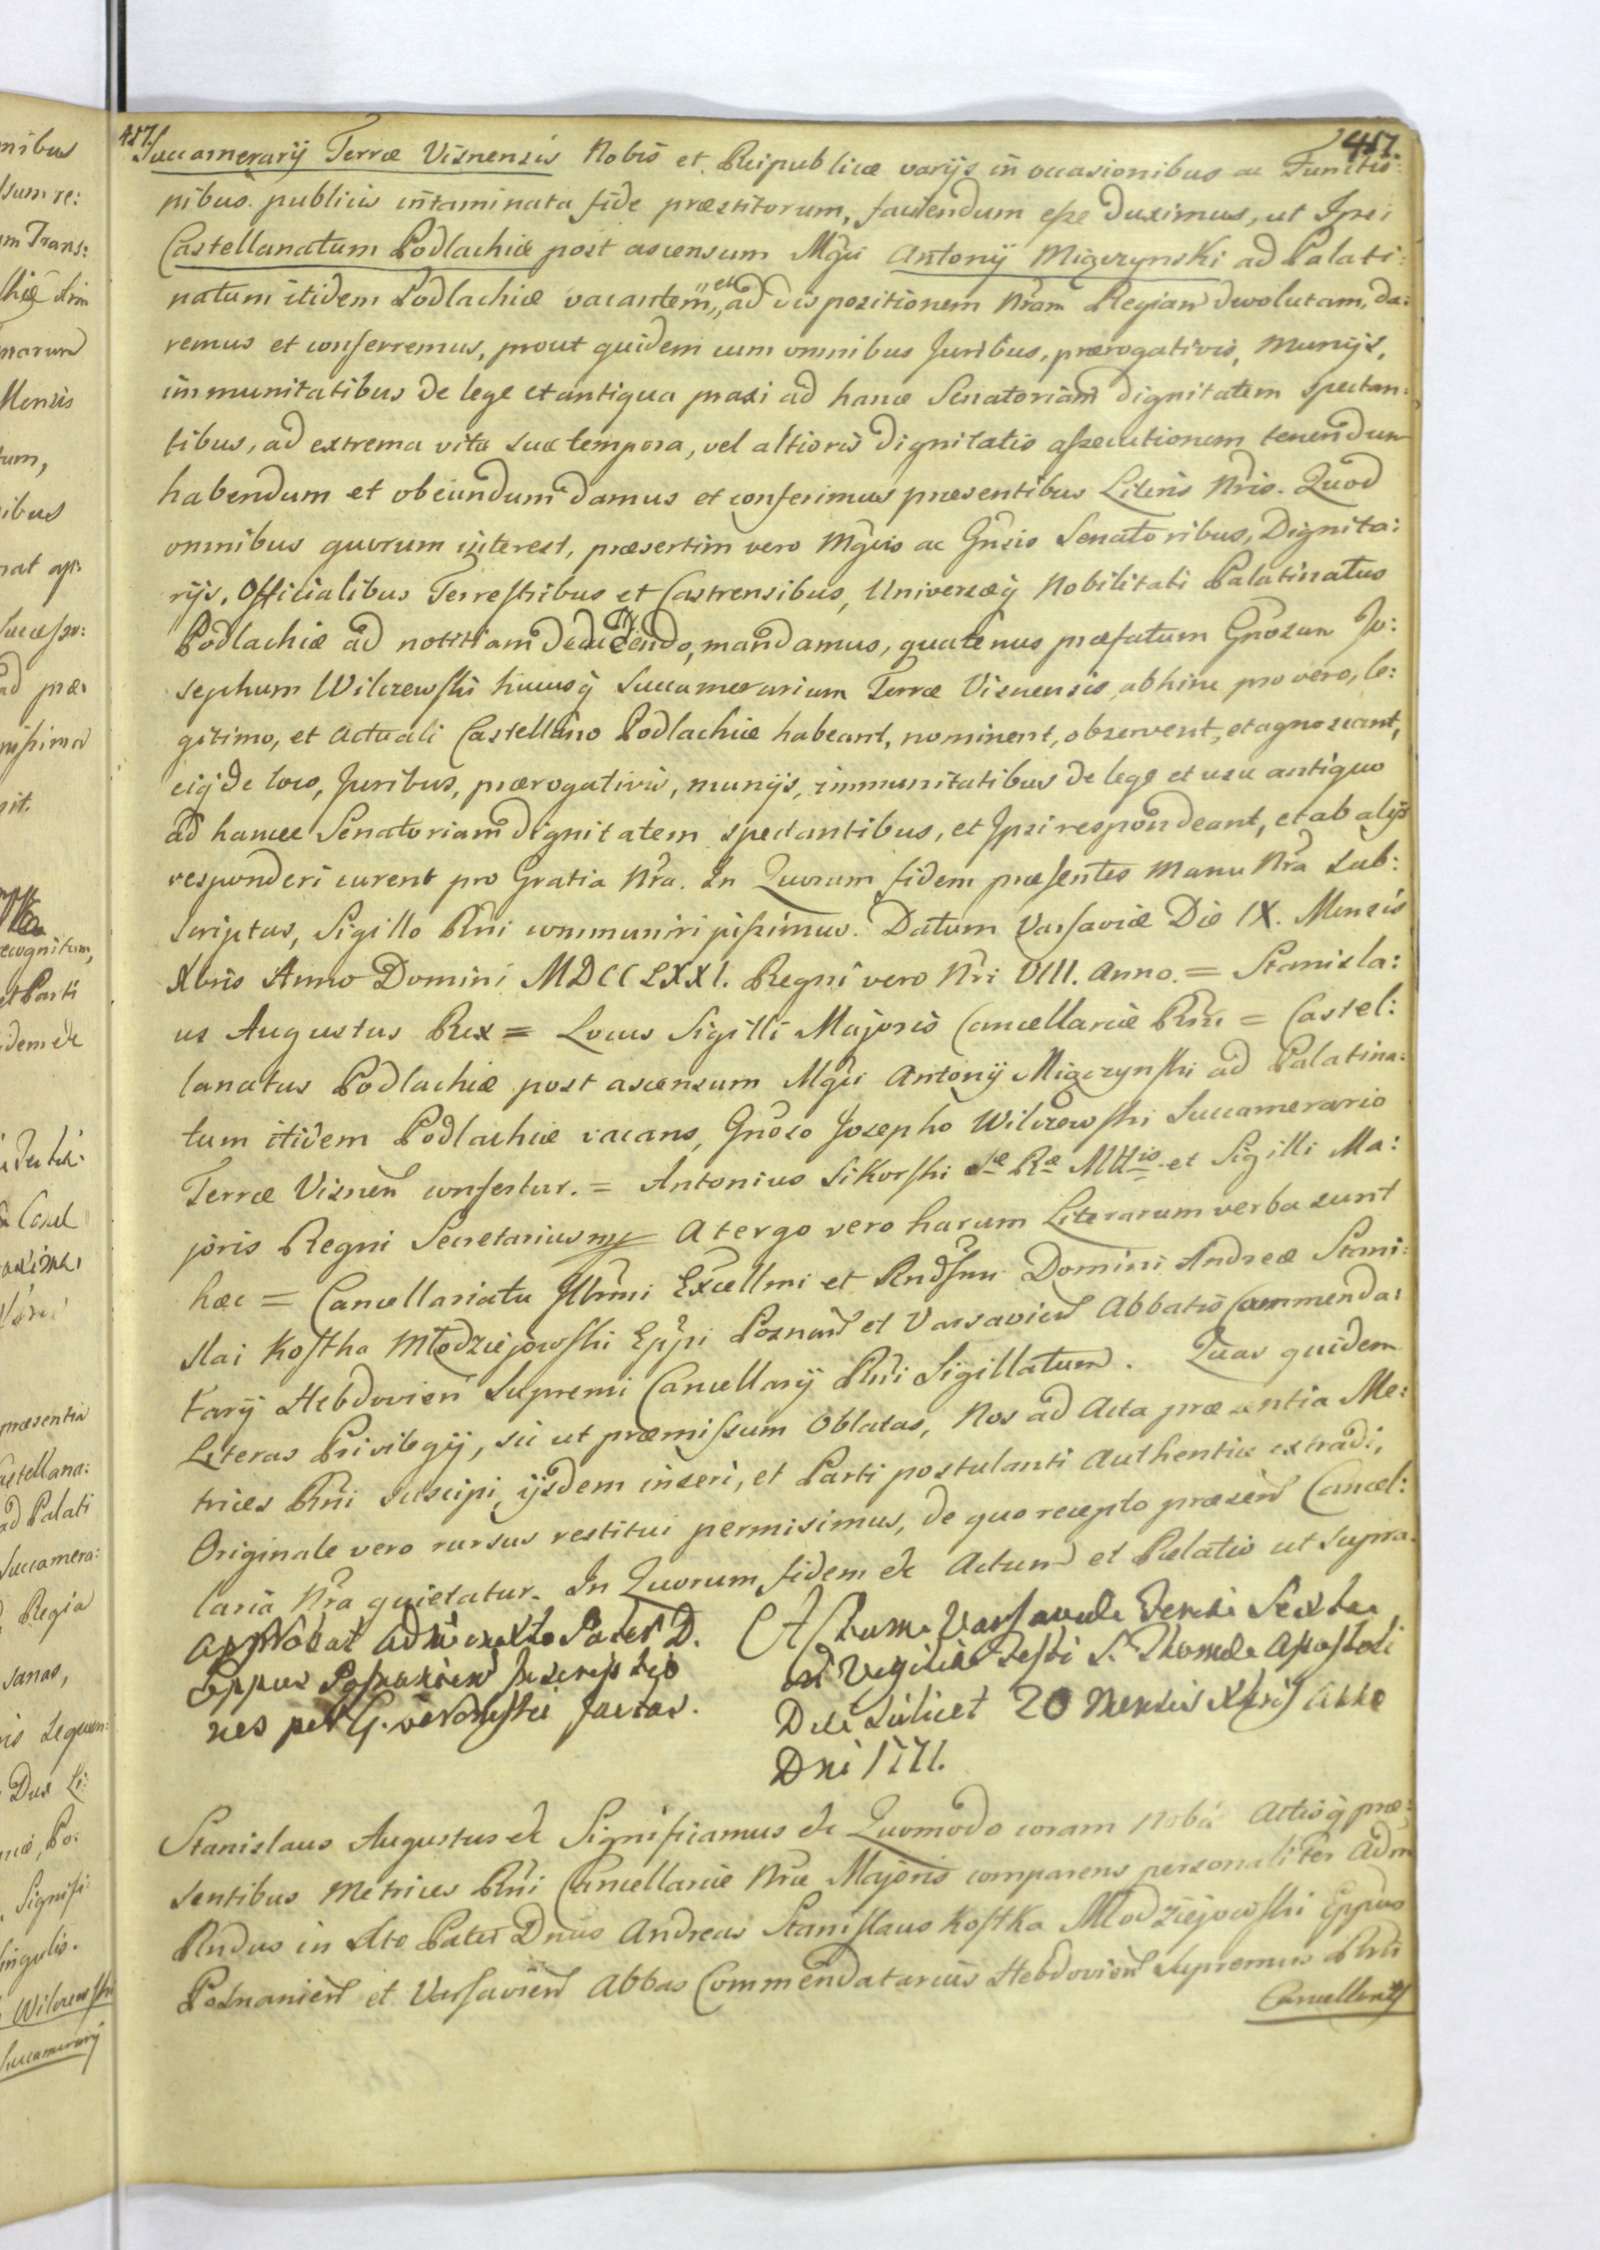 457. 457
Succamerarij Terræ Visnensis Nobis et Reipublicæ varijs in occasionibus ac Functio:
nibus publicis intaminata fide præstitorum, faciendum esse duximus, ut Ipsi
Castellanatum Podlachiæ post ascensum Mgci Antonij Miączynski ad Palati:
natum itidem Podlachiæ vacantem, et ad dispositionem Nram Regiam devolutam, da:
remus et conferremus, prout quidem cum omnibus Juribus, prærogativis, Munijs,
immunitatibus de lege et antiqua praxi ad hanc Senatoriam dignitatem spectan:
tibus, ad extrema vitæ suæ tempora, vel altioris dignitatis assecutionem tenendum
habendum et obeundum damus et conferimus præsentibus Literis Nris. Quod
omnibus quorum interest, præsertim vero Mgcis ac Gnsis Senatoribus, Dignita:
rijs, Officialibus Terrestribus et Castrensibus, Universæq Nobilitati Palatinatus
Podlachiæ ad notitiam deducendo, mandamus, quatenus præfatum Gnosum Jo:
sephum Wilczewski hucusq Succamerarium Terræ Visnensis, abhinc pro vero, le:
gitimo, et Actuali Castellano Podlachiæ habeant, nominent, observent, et agnoscant,
eiq de loco, Juribus, prærogativis, munijs, immunitatibus de lege et usu antiquo
ad hancce Senatoriam dignitatem spectantibus, et Ipsi respondeant, et ab alijs
responderi curent pro Gratia Nra. In Quorum fidem præsentes Manu Nra Sub:
scriptas, Sigillo Rni communiri jussimus. Datum Varsaviæ Die IX. Mensis
Xbris Anno Domini MDCCLXXI. Regni vero Nri VIII. Anno. = Stanisla:
us Augustus Rex = Locus Sigilli Majoris Cancellariæ Rni = Castel:
lanatus Podlachiæ post ascensum Mgci Antonij Miączynski ad Palatina:
tum itidem Podlachiæ vacans, Gnoso Josepho Wilczewski Succamerario
Terræ Visnen confertur. = Antonius Sikorski Sæ Ræ Mttis et Sigilli Ma:
joris Regni Secretarius mp A tergo vero harum Literarum verba sunt
hæc = Cancellariatu Illmi Excellmi et Rndssmi Domini Andreæ Stani:
slai Kostka Młodziejowski Eppi Posnan et Varsavien Abbatis Commenda:
tarij Hebdovien Supremi Cancellarij Rni Sigillatum. Quas quidem
Literas Privilegij, sic ut præmissum Oblatas, Nos ad Acta præsentia Me:
trices Rni suscipi, ijsdem inseri, et Parti postulanti Authentice extradi,
Originale vero rursus restitui permisimus, de quo recepto præsen Cancel:
laria Nra quietatur. In Quorum fidem etc Actum et Relatio ut Supra.
Approbat Adm in Xto Pater D.
Eppus Posnanien Inscriptio
nes per G. factas.
Actum Varsaviæ Feria Sexta
in Vigilia Festi S. Thomæ Apostoli
Die scilicet 20 Mensis Xbris Anno
Dni 1771.
Stanislaus Augustus etc Significamus etc Quomodo coram Nobis Actisq præ:
sentibus Metrices Rni Cancellariæ Nræ Majoris comparens personaliter Adm
Rndus in Xto Pater Dnus Andreas Stanislaus Kostka Młodziejowski Eppus
Posnanien et Varsavien Abbas Commendatarius Hebdovien Supremus Rni
Cancellarij